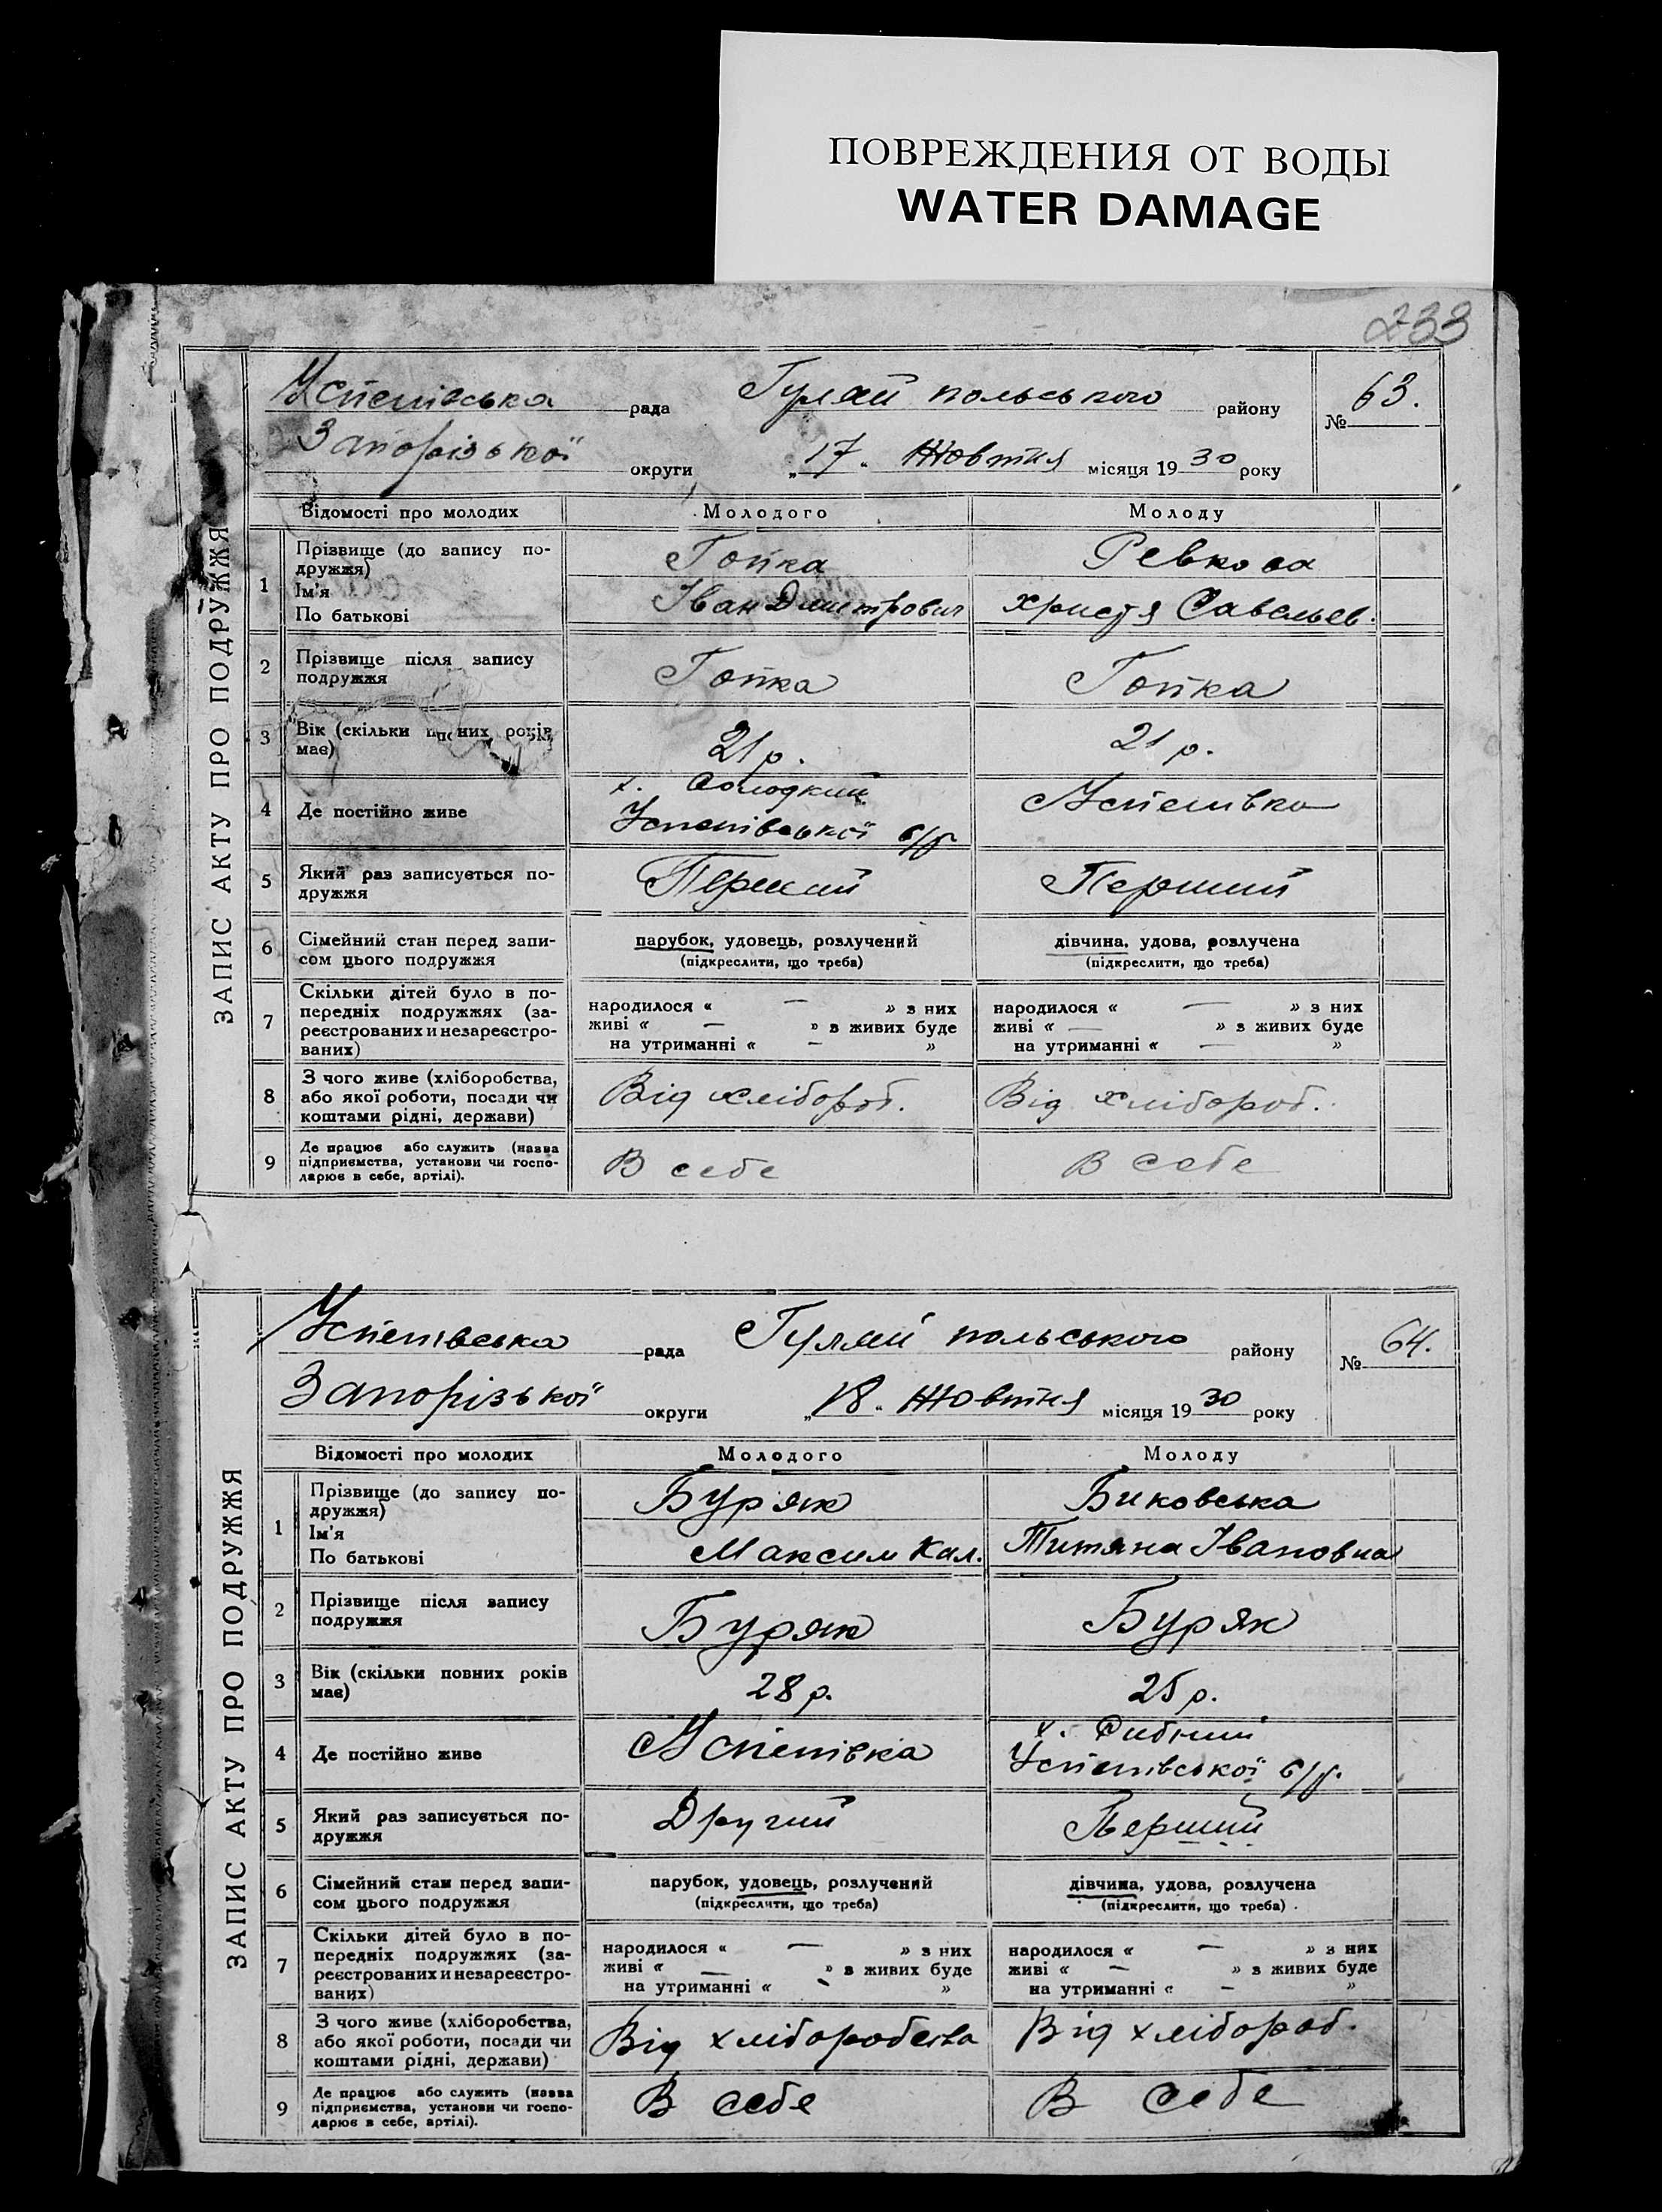 ПОВРЕЖДЕНИЯ ОТ ВОДЫ
WATER DAMAGE
233
ЗАПИС АКТУ ПРО ПОДРУЖЖЯ
Успенівська рада Гуляй польського району № 63.
Запорізької округи „17" Жовтня місяця 1930 року
Відомості про молодих Молодого Молоду
1 Прізвище (до запису по- Гопка Ревкова
дружжя)
Ім'я Іван Дмитрович Христя Савельев.
По батькові
2 Прізвище після запису Гопка Гопка
подружжя
3 Вік (скільки них років 21 р. 21 р.
має)
4 Де постійно живе х. Солодкий Успенівка
Успенівської с/р.
5 Який раз записується по- Перший Перший
дружжя
6 Сімейний стан перед запи- парубок, удовець, розлучений дівчина, удова, розлучена
сом цього подружжя (підкреслити, що треба) (підкреслити, що треба)
7 Скільки дітей було в по-
передніх подружжях (за- народилося « — » з них народилося « — » з них
реєстрованих и незареєстро- живі « — » в живих буде живі « — » з живих буде
ваних) на утриманні « — » на утриманні « — »
8 З чого живе (хліборобства, Від хлібороб. Від хлібороб.
або якої роботи, посади чи
коштами рідні, держави)
9 Де працює або служить (назва В себе В себе
підприємства, установи чи госпо-
дарює в себе, артілі).
ЗАПИС АКТУ ПРО ПОДРУЖЖЯ
Успенівська рада Гуляй польського району № 64.
Запорізької округи „18" Жовтня місяця 1930 року
Відомості про молодих Молодого Молоду
1 Прізвище (до запису по- Буряк Биковська
дружжя)
Ім'я Максим Кал. Титяна Івановна
По батькові
2 Прізвище після запису Буряк Буряк
подружжя
3 Вік (скільки повних років 28 р. 25 р.
має)
4 Де постійно живе Успенівка х.
Успенівської с/р.
5 Який раз записується по- Другий Перший
дружжя
6 Сімейний стан перед запи- парубок, удовець, розлучений дівчина, удова, розлучена
сом цього подружжя (підкреслити, що треба) (підкреслити, що треба)
7 Скільки дітей було в по-
передніх подружжях (за- народилося « — » з них народилося « — » з них
реєстрованих и незареєстро- живі « — » в живих буде живі « — » з живих буде
ваних) на утриманні « - » на утриманні « - »
8 З чого живе (хліборобства, Від хліборобства Від хлібороб.
або якої роботи, посади чи
коштами рідні, держави)
9 Де працює або служить (назва В себе В себе
підприємства, установи чи госпо-
дарює в себе, артілі).